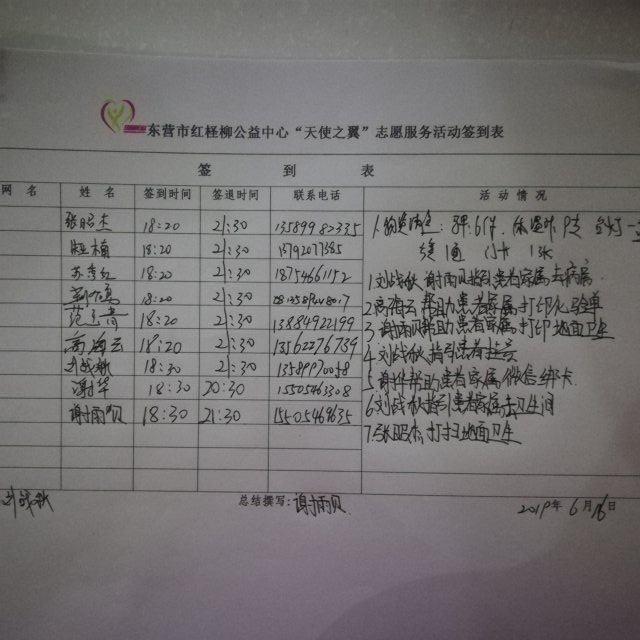 东营市红柽柳公益中心“天使之翼”志愿服务活动签到表
签 到 表
网 名 姓 名 签到时间 签退时间 联系电话 活 动 情 况
张昭杰 18:20 21:30 13589982335
18:20 21:30 13792077385
18:20 21:30 18754661152
18:20 21:30
18:20 21:30 13884922199
高海云 18:20 21:30 13562276739
刘战秋 18:30 21:30 13589970058
谢华 18:30 20:30 15505463308
谢雨贝 18:30 21:30 15505469635
1.刘战秋 谢雨贝指引患者家属去病房
2.高海云帮助患者家属打印化验单
3.谢雨贝帮助患者家属打印地面卫生
4.刘战秋指引患者挂号
5.谢华帮助患者家属微信绑卡
6.刘战秋指引患者家属去卫生间
7.张昭杰打扫地面卫生
刘战秋 总结撰写:谢雨贝 2019年6月16日